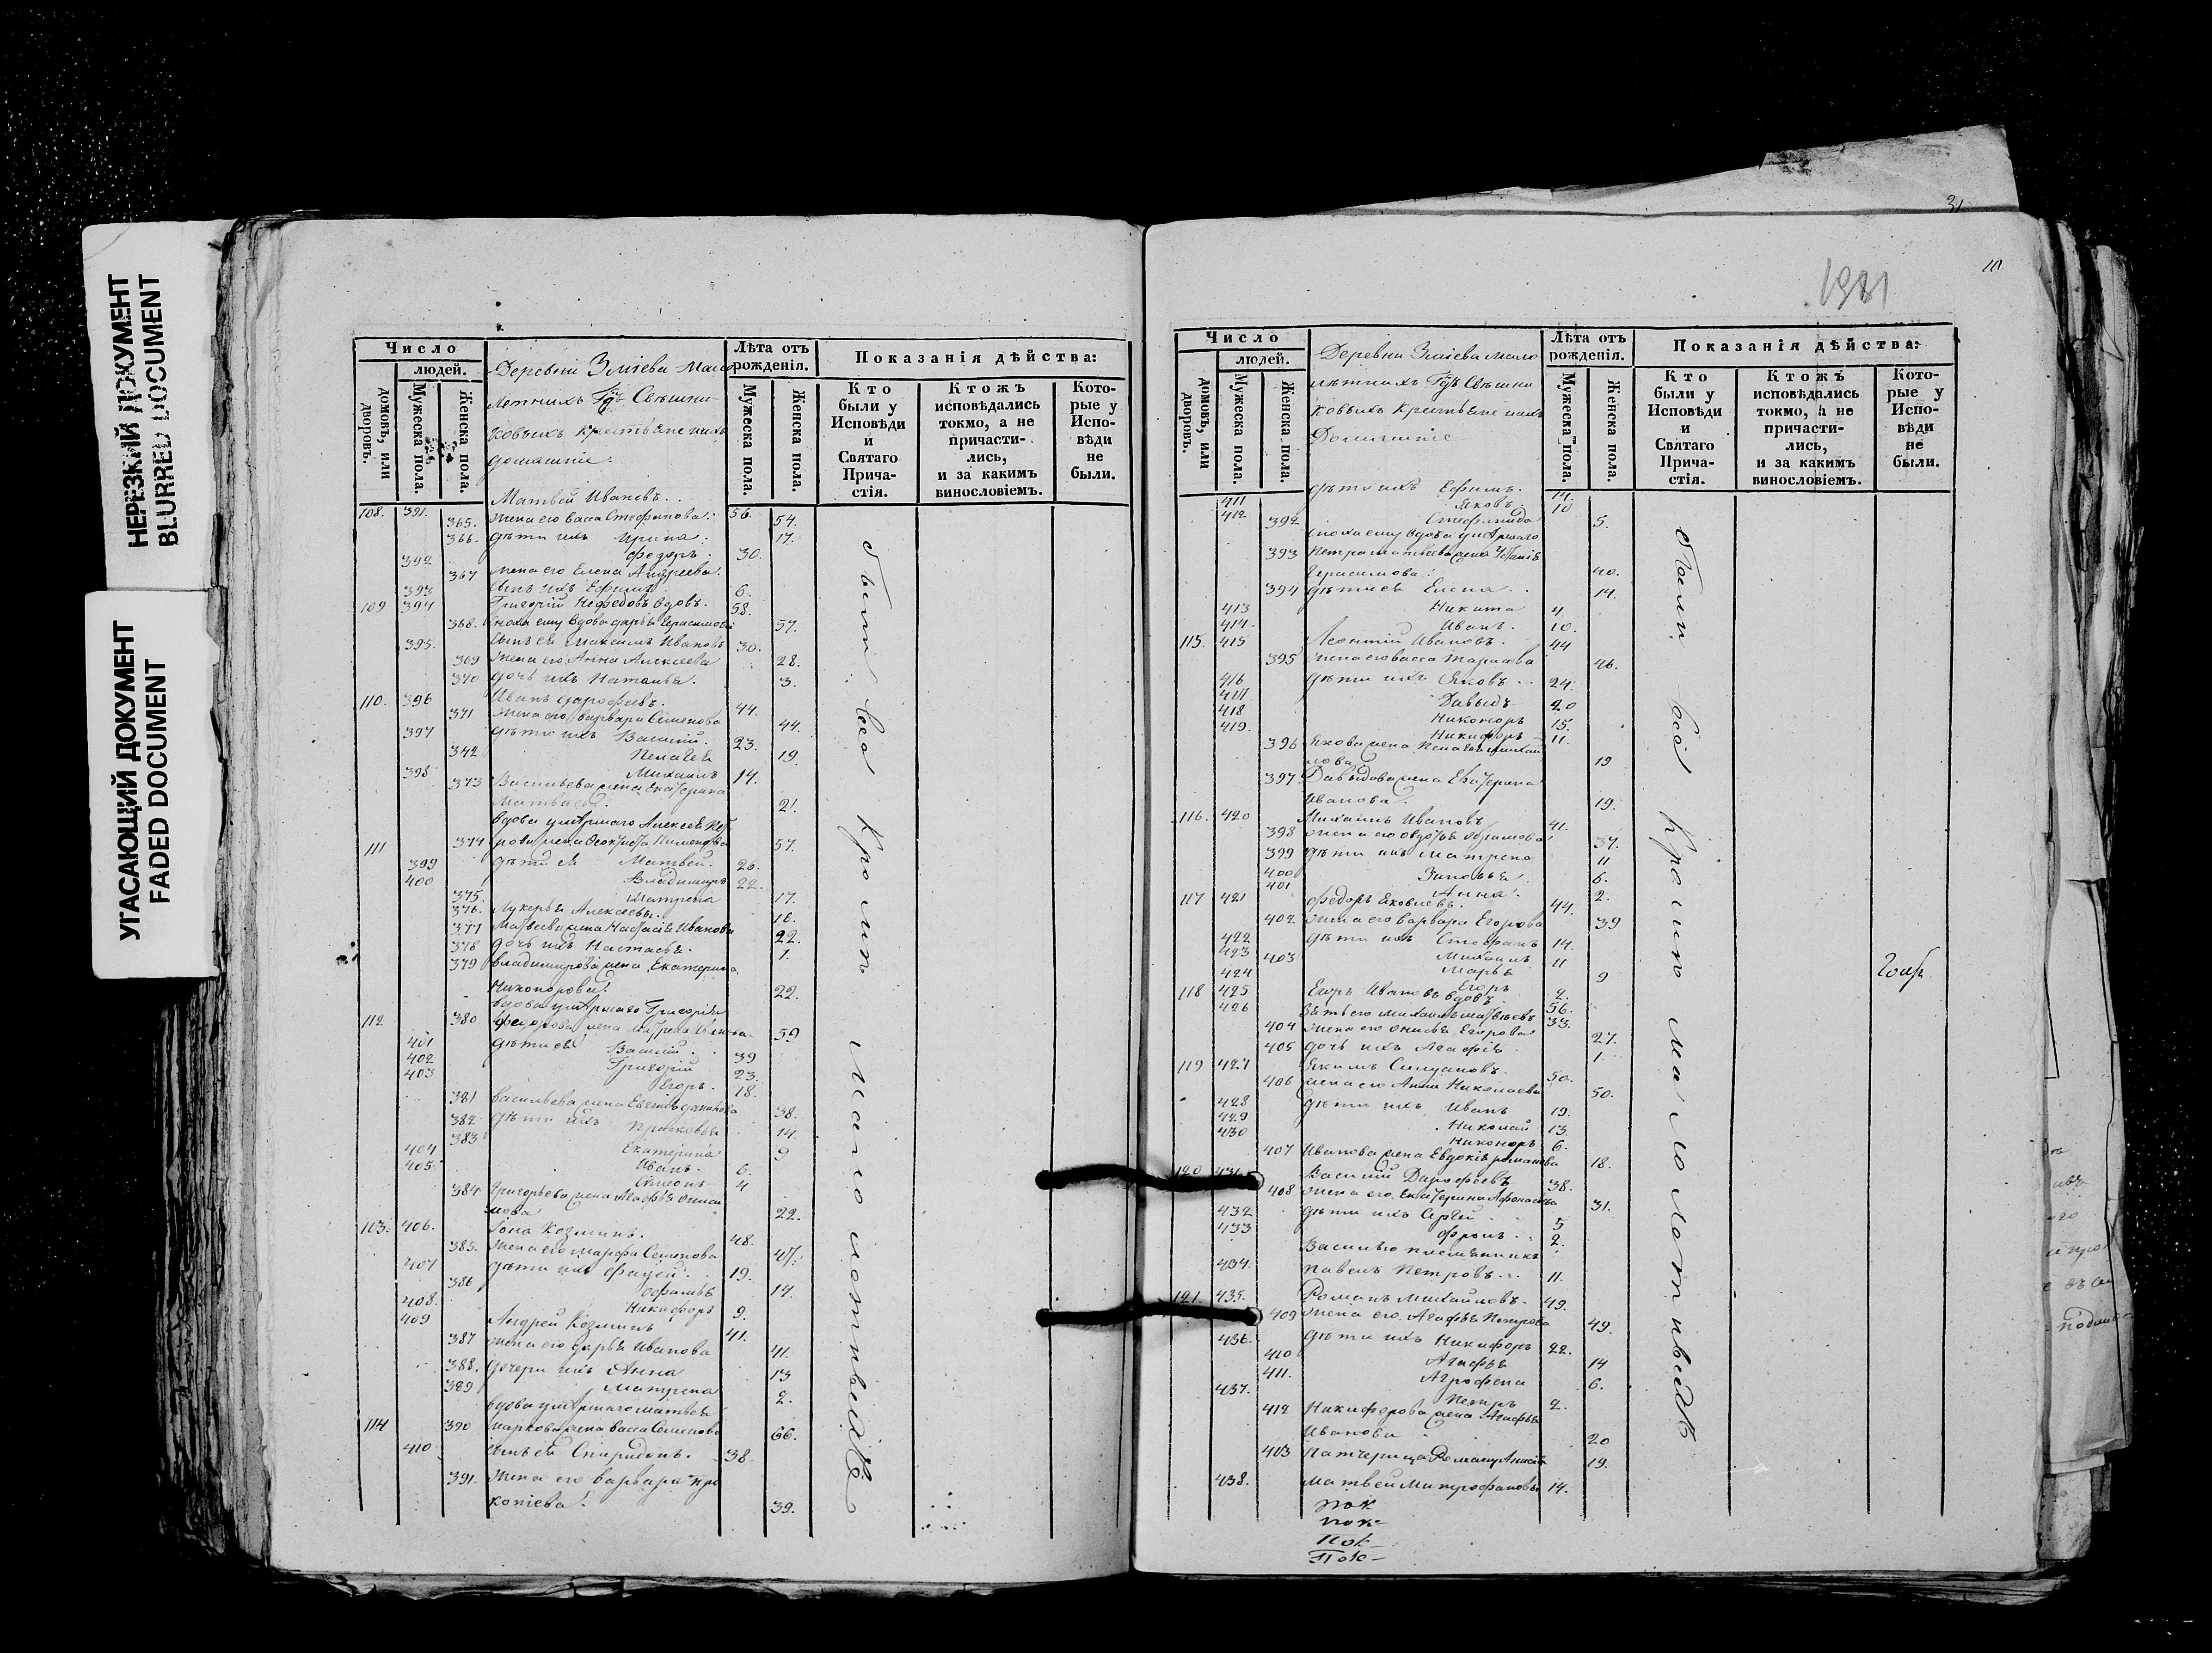 НЕРЕЗКИЙ ДОКУМЕНТ
BLURRED DOCUMENT
УГАСАЮЩИЙ ДОКУМЕНТ
FADED DOCUMENT
Число
людей.
домовъ, или дворовъ.
Мужеска пола.
Женска пола.
Деревни
домашніе.
Лѣта отъ рожденія.
Мужеска пола.
Женска пола.
Показанія дѣйства:
Кто были у Исповѣди и Святаго Прича-стія.
Ктожъ исповѣдались токмо, а не причасти-лись, и за какимъ винословіемъ.
Кото-рые у Испо-вѣди не были.
Матвей Ивановъ.
108. 391. 56.
365. жена его васса Стефанова. 54.
366. дѣти ихъ Ирина 17.
392 Федоръ 30.
367 жена его Елена Андреева.
393 сынъ ихъ Ефимъ 6.
109 394 Григорій Нефедовъ вдовъ. 58.
368. сноха ему вдова дарья Герасимова 57.
395. сынъ ея Максимъ Ивановъ 30.
369 жена его Анна Алексеева 28.
370 дочь ихъ Наталья. 3.
110. 396 Иванъ дорофеевъ. 44.
371 жена его варвара Семенова 44.
397 дѣти ихъ Василій. 23.
Пелагея 19.
398 Михаилъ 14.
373 Васильева жена Екатерина
Матвеева. 21.
111 374 57.
399 дѣти ея Матвей. 26.
400 Владимиръ 22.
375. Матрена 17.
376. Лукерья Алексеевы. 16.
377 Матвеева жена Настасія Иванова 22.
378 дочь ихъ Настасья. 1.
379 владимирова жена Екатерина
Никонорова. 22.
вдова умершаго Григорія
112 380 59
401 дѣти ея Василій 39
402 Григорій 23.
403 Егоръ. 18.
381 38.
382 дѣти ихъ Прасковья 14.
383 Екатерина 9
404 Иванъ 6.
405 Симеонъ 4
384 22.
103. 406. Іона Козминъ. 48.
385. жена его марфа Семенова 47.
407 дѣти ихъ Фадей. 19.
386 14.
408. Никифоръ 9.
409 Андрей Козминъ 41.
387 жена его дарья Иванова 41.
388. дочери ихъ Анна 13
389 Матрена 2.
вдова умершаго матвея
114 390 маркова жена васса Семенова 66.
410 сынъ ея Спиридонъ. 38.
391. жена его варвара про
копіева. 39.
были всѣ кромѣ малолетныхъ
31
10
1981
Число
людей.
домовъ, или дворовъ.
Мужеска пола.
Женска пола.
Деревни
Домашніе
Лѣта отъ рожденія.
Мужеска пола.
Женска пола.
Показанія дѣйства:
Кто были у Исповѣди и Святаго Прича-стія.
Ктожъ исповѣдались токмо, а не причасти-лись, и за какимъ винословіемъ.
Кото-рые у Испо-вѣди не были.
411 дѣти ихъ Ефимъ. 14.
412 Яковъ 10
392 Стефанида 5.
сноха ему вдова умершаго
393
Герасимова. 40.
394 дѣти ея Елена 14.
413 Никита 4.
414. Иванъ. 10.
115. 415 Леонтій Ивановъ. 44
395 46.
416 дѣти ихъ Яковъ 24.
417 Давыдъ 20
418 Никоноръ 15.
419. Никифоръ 11.
396 Якова жена Пелагея михай
лова 19
397 Давыдова жена Екатерина
Иванова. 19.
116. 420 Михаилъ Ивановъ 41.
398 37.
399 дѣти ихъ матрена 11
400 Зиновья 6.
401 Анна. 2.
117 421 федоръ Яковлевъ. 44.
402. жена его варвара Егорова 39
422 дѣти ихъ Стефанъ 14.
423 Михаилъ 11
403 Марья 9
424 Егоръ 2.
118 425 Егоръ Ивановъ вдовъ 56.
426 зять его михаилъ матвеевъ 33.
404 жена его онисья Егорова 27.
405 дочь ихъ Агафія 1
119 427 Якимъ 50.
406 жена его Анна Николаева 50.
428 дѣти ихъ Иванъ 19.
429 Николай 13.
430 Никоноръ 6.
407 Иванова жена Евдокія романова 18.
120 431 Василій Дорофеевъ 38.
408 жена его Екатерина Афонасьева 31.
432 дѣти ихъ Сергей 5
433 Фролъ 2.
Василью племянникъ
434. павелъ Петровъ 11.
121 435. Романъ михайловъ. 49.
409 жена его Агафья Петрова 49.
436. дѣти ихъ Никифоръ 22.
410 Агафья 14
411. Агрофена 6.
437. Петръ 2.
412 Никифорова жена Агафья
Иванова 20
413 19.
438. матвей митрофановъ 14.
Пок
Пок
Пок
Пок
были всѣ кромѣ малолетныхъ